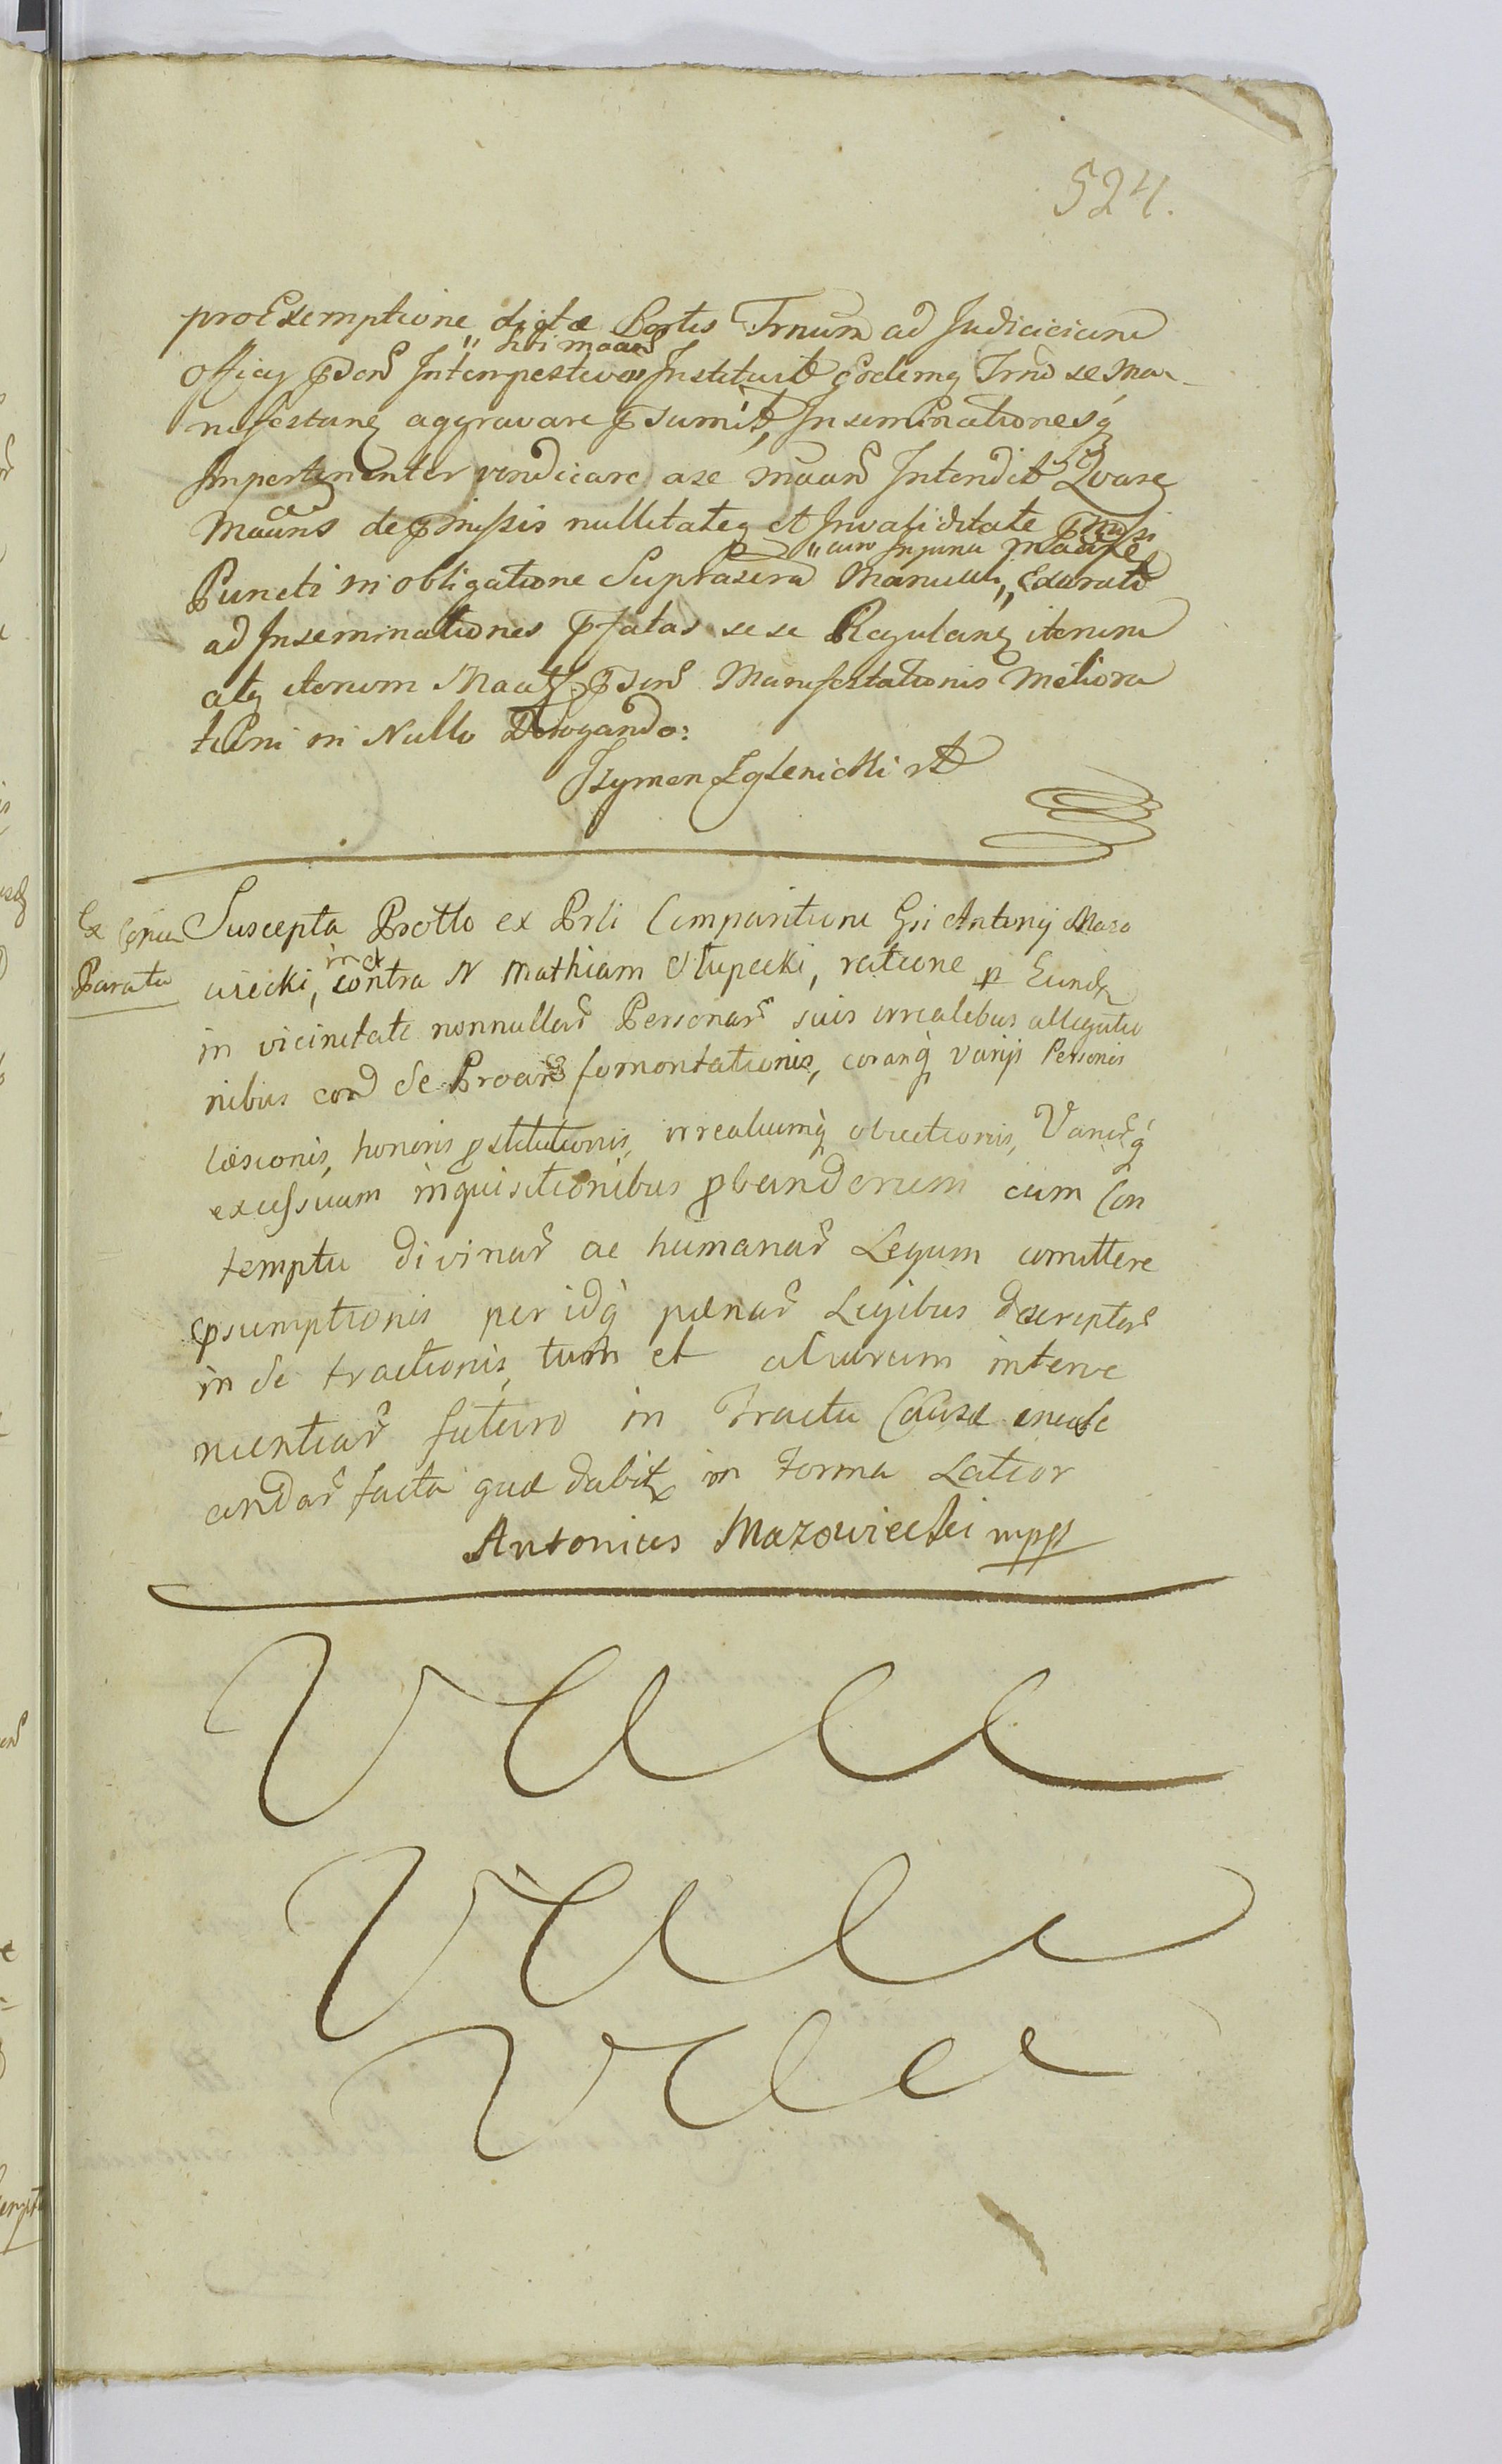 524.
pro Exemptione dictæ Partis Trnum ad Judicium
Officij Intempestive Instituit Eodemq Trno se Ma-
nifestanẽ aggravare psumit, Inseminationesq
Impertinenter vindicare a se Intendit Qvare
de pmissis nullitateq et Invaliditate
Puncti in obligatione Suprascra Manuali, Exarato
ad Inseminationes pfatas sese Regulanẽ iterum
atq iterum psens Manifestationis Meliora
tioni in Nullo Derogando:
Szymon Zglenicki
Ex Copia
Parata
Suscepta Protto ex Prli Comparitione Gsi Antonij Mazo
wiecki, contra N Mathiam Słupecki, ratione p Eundẽ
in vicinitate nonnullar Personar suis irrealibus allegatio
nibus de fomentationis, coramq varijs Personis
læsionis, honoris pstitutionis, irrealiumq obiectionis, Variorq
excessuum inquisitionibus pbandorum cum Con
temptu divinar ac humanar Legum comittere
psumptionis per idq pænar Legibus descriptar
in se tractionis, tum et aliarum interve
nientiar futuro in Tractu Causæ enucle
andar facta quæ dabitr in Forma Latior
Antonius Mazowiecki mpp